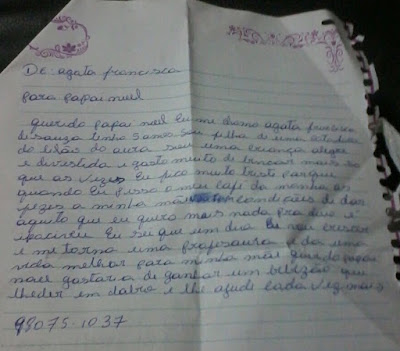 De: agata francisca
para papai noel
querido papai noel Eu me chamo agata francisca
de souza tenho 5 anos sou filha de uma catadora
do lixão do aura sou uma criança alegre
e divertida e gosto muito de brincar mais so
que as vezes Eu fico muito triste porque
quando Eu pesso o meu café da manha as
vezes a minha mãe não tem condicões de dar
aquilo que eu quero mais nada pra Deus é
Eu sei que um dia Eu vou crescer
e me torna uma profesora e da uma
vida melhor para minha mãe querido papai
noel gostaria de ganhar um que
lhe der em dobro e lhe ajude cada vez mais
98075-1037